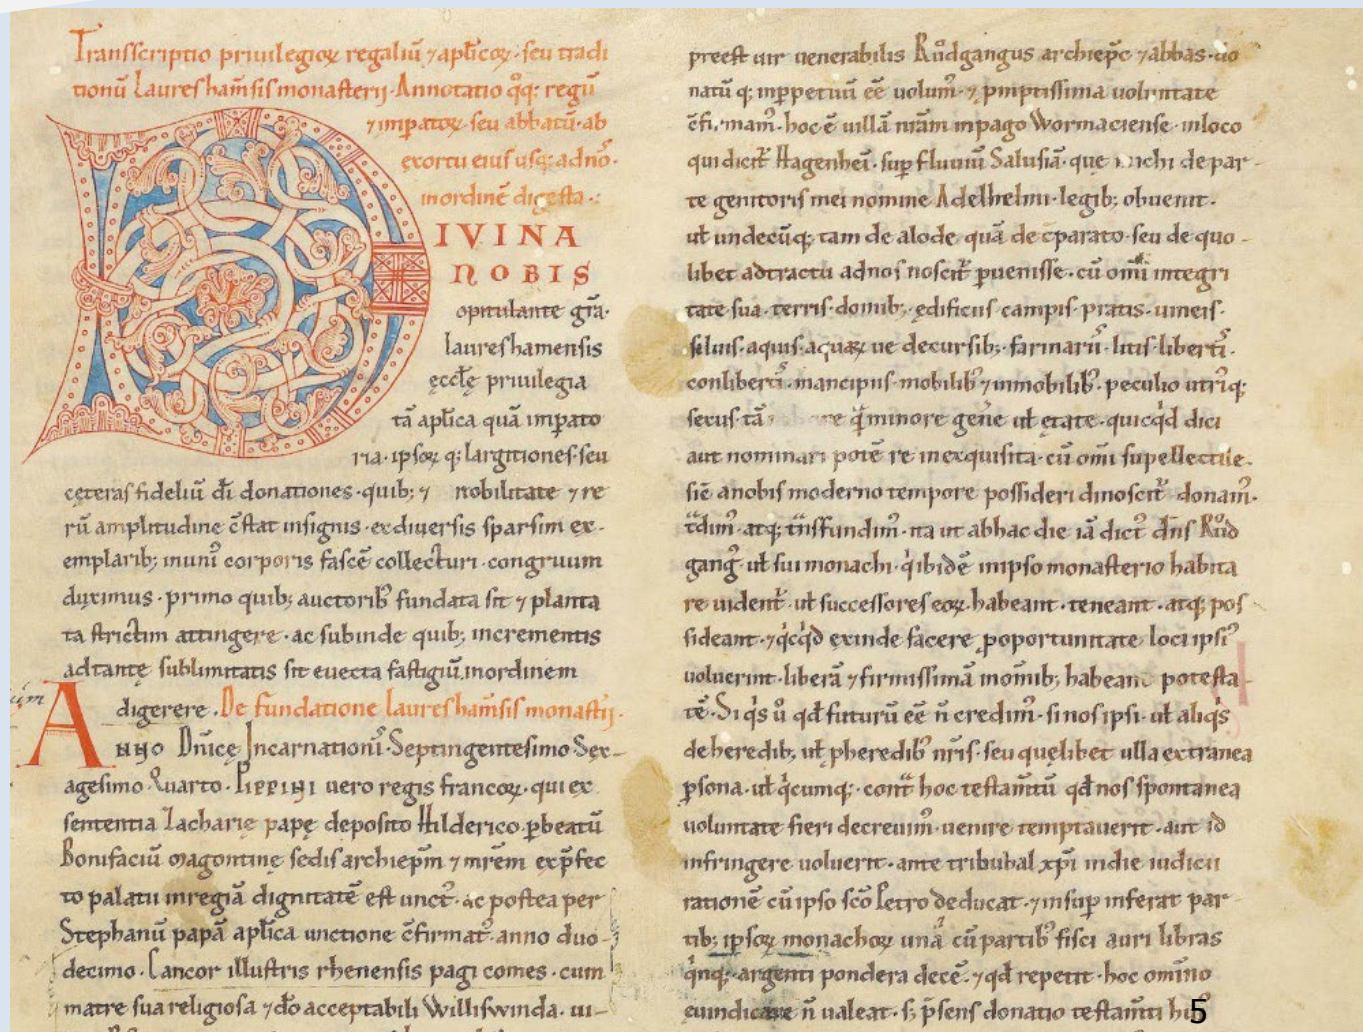 Transscriptio priuilegioꝝ regaliū ⁊ apl̄icoꝝ · seu tradi
tionū Laureshām̄sis monasterij · Annotatio qͦq; regū
⁊ imꝑatoꝝ · seu abbatū · ab
exortu eius usq; ad nr̄o ·
in ordinē digesta .:
DIVINA
NOBIS
opitulante gr̄a ·
laureshamensis
ęccl̄ę priuilegia
tā apl̄ica quā imꝑato
ria · ipsoꝝ q; largitiones · seu
cęteras fideliū dī donationes · quib; ⁊ nobilitate ⁊ re
rū amplitudine c̄stat insignis · ex diuersis sparsim ex-
emplarib; in uni᷒ corporis fascē collecturi · congruum
duximus · primo quib; auctorib᷒ fundata sit ⁊ planta
ta strictim attingere · ac subinde quib; incrementis
ad tantę sublimitatis sit euecta fastigiū, in ordinem
digerere . De fundatione laureshām̄sis monast̄ij.
ANNO Dn̄icę Incarnationi᷒ · Septingentesimo Sex-
agesimo Quarto · PIPPINI uero regis francoꝝ · qui ex
sententia Zacharię papę deposito Hilderico · ꝑ beatū
Bonifaciū Magontinę sedis archiep̄m ⁊ mr̄em ex p̄fec
to palatii in regiā dignitatē est unct᷒ · ac postea per
Stephanū papā apl̄ica unctione c̄firmat᷒ · anno duo-
decimo · Cancor illustris rhenensis pagi comes · cum
matre sua religiosa ⁊ dō acceptabili Williswinda · ui-
preest uir uenerabilis Růdgangus archiep̄c ⁊ abbas · do
natū q; inꝑpetuū eē̄ uolum᷒ · ⁊ ꝓmptissima uoluntate
c̄firmam᷒ · hoc ē uillā nr̄am in pago Wormaciense · in loco
qui dicit᷑ Hagenheī · suꝑ fluuiū Salusiā · que michi de par-
te genitoris mei nomine Adelhelmi · legib; obuenit ·
ut̄ undecūq; tam de alode quā de c̄parato · seu de quo-
libet adtractu ad nos noscit᷑ ꝑuenisse · cū omī integri
tate sua · terris · domib; · ędificiis campis · pratis · uineis ·
siluis · aquis · aquaꝝ ue decursib; · farinarii᷒ · litis · liberti᷒ ·
conliberti᷒ · mancipiis · mobilib᷒ ⁊ inmobilib᷒ · peculio utri᷒q;
sexus · tā re qͣ minore gen̄e ut̄ ętate · quicqͥd dici
aut nominari potē re inexquisita · cū omī supellectile ·
sic̄ a nobis moderno tempore possideri dinoscit᷑ · donam᷒ ·
tᷓdim᷒ · atq; tᷓnsfundim᷒ · ita ut ab hac die iā dict᷒ dn̄s Růd
gang᷒ · ut̄ sui monachi · qͥ ibidē in ipso monasterio habita
re uident᷑ · ut̄ successores eoꝝ · habeant · teneant · atq; pos
sideant · ⁊ qͥcqͥd exinde facere ꝓ oportunitate loci ipsi᷒
uoluerint · liberā ⁊ firmissimā in om̄ib; habeant potesta-
tē · Si qͥs ů qd̄ futurū eē̄ n̄ credim᷒ · si nos ipsi · ut̄ aliqͥs
de heredib; ut̄ ꝓheredib᷒ nr̄is · seu quęlibet ulla extranea
ꝑsona · ut̄ qͥcumq; · contᷓ hoc testam̄tū qd̄ nos spontanea
uoluntate fieri decreuim᷒ · uenire temptauerit · aut id
infringere uoluerit · ante tribubal xp̄i in die iudicii
rationē cū ipso sc̄o Petro deducat · ⁊ insuꝑ inferat par-
tib; ipsoꝝ monachoꝝ unā cū partib᷒ fisci auri libras
qͥnq; · argenti pondera decē · ⁊ qd̄ repetit · hoc om̄ino
euindicare n̄ ualeat · s; p̄sens donatio testam̄ti
5